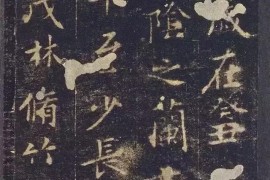 歲在癸
陰之蘭
至少長
茂林脩竹